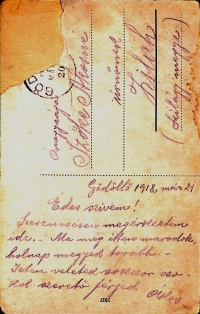 GÖD
20
Őnagysága
úrnőnek
Zilah
(Szilágy megye)
Gödöllő 1918, már. 21
Édes szivem!
Szerencsésen megérkeztem
ide. - Ma még itten maradok,
holnap megyek tovább. -
Isten veletek sokszor cso-
kol szerető férjed